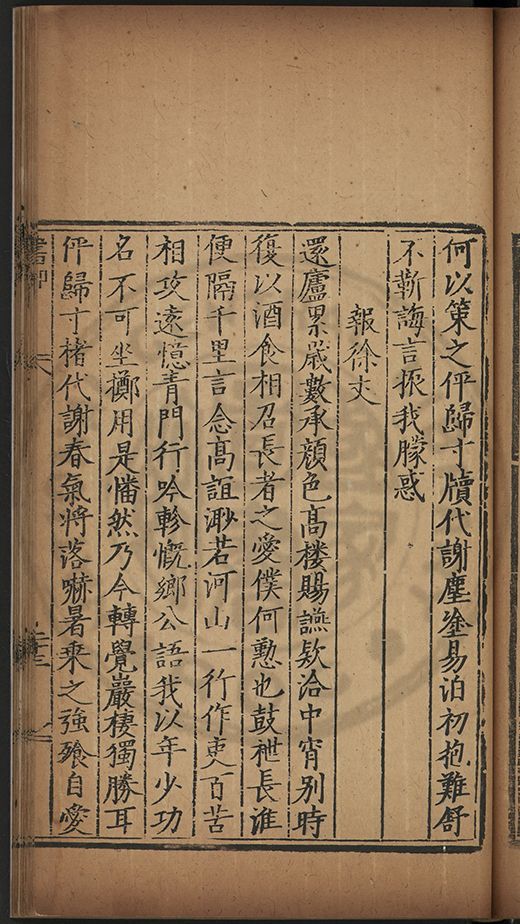 何以策之伻歸寸牘代謝塵塗易泊初抱難舒
不靳誨言振我朦惑
報徐丈
還廬累歲數承顏色高楼賜讌欵洽中宵別時
復以酒食相召長者之愛僕何懃也鼓枻長淮
便隔千里言念高誼渺若河山一行作吏百苦
相攻遠憶青門行吟軫慨鄉公語我以年少功
名不可坐擲用是憣然乃今轉覺巖棲獨勝耳
伻歸寸楮代謝春氣将落嚇暑乗之強飱自愛